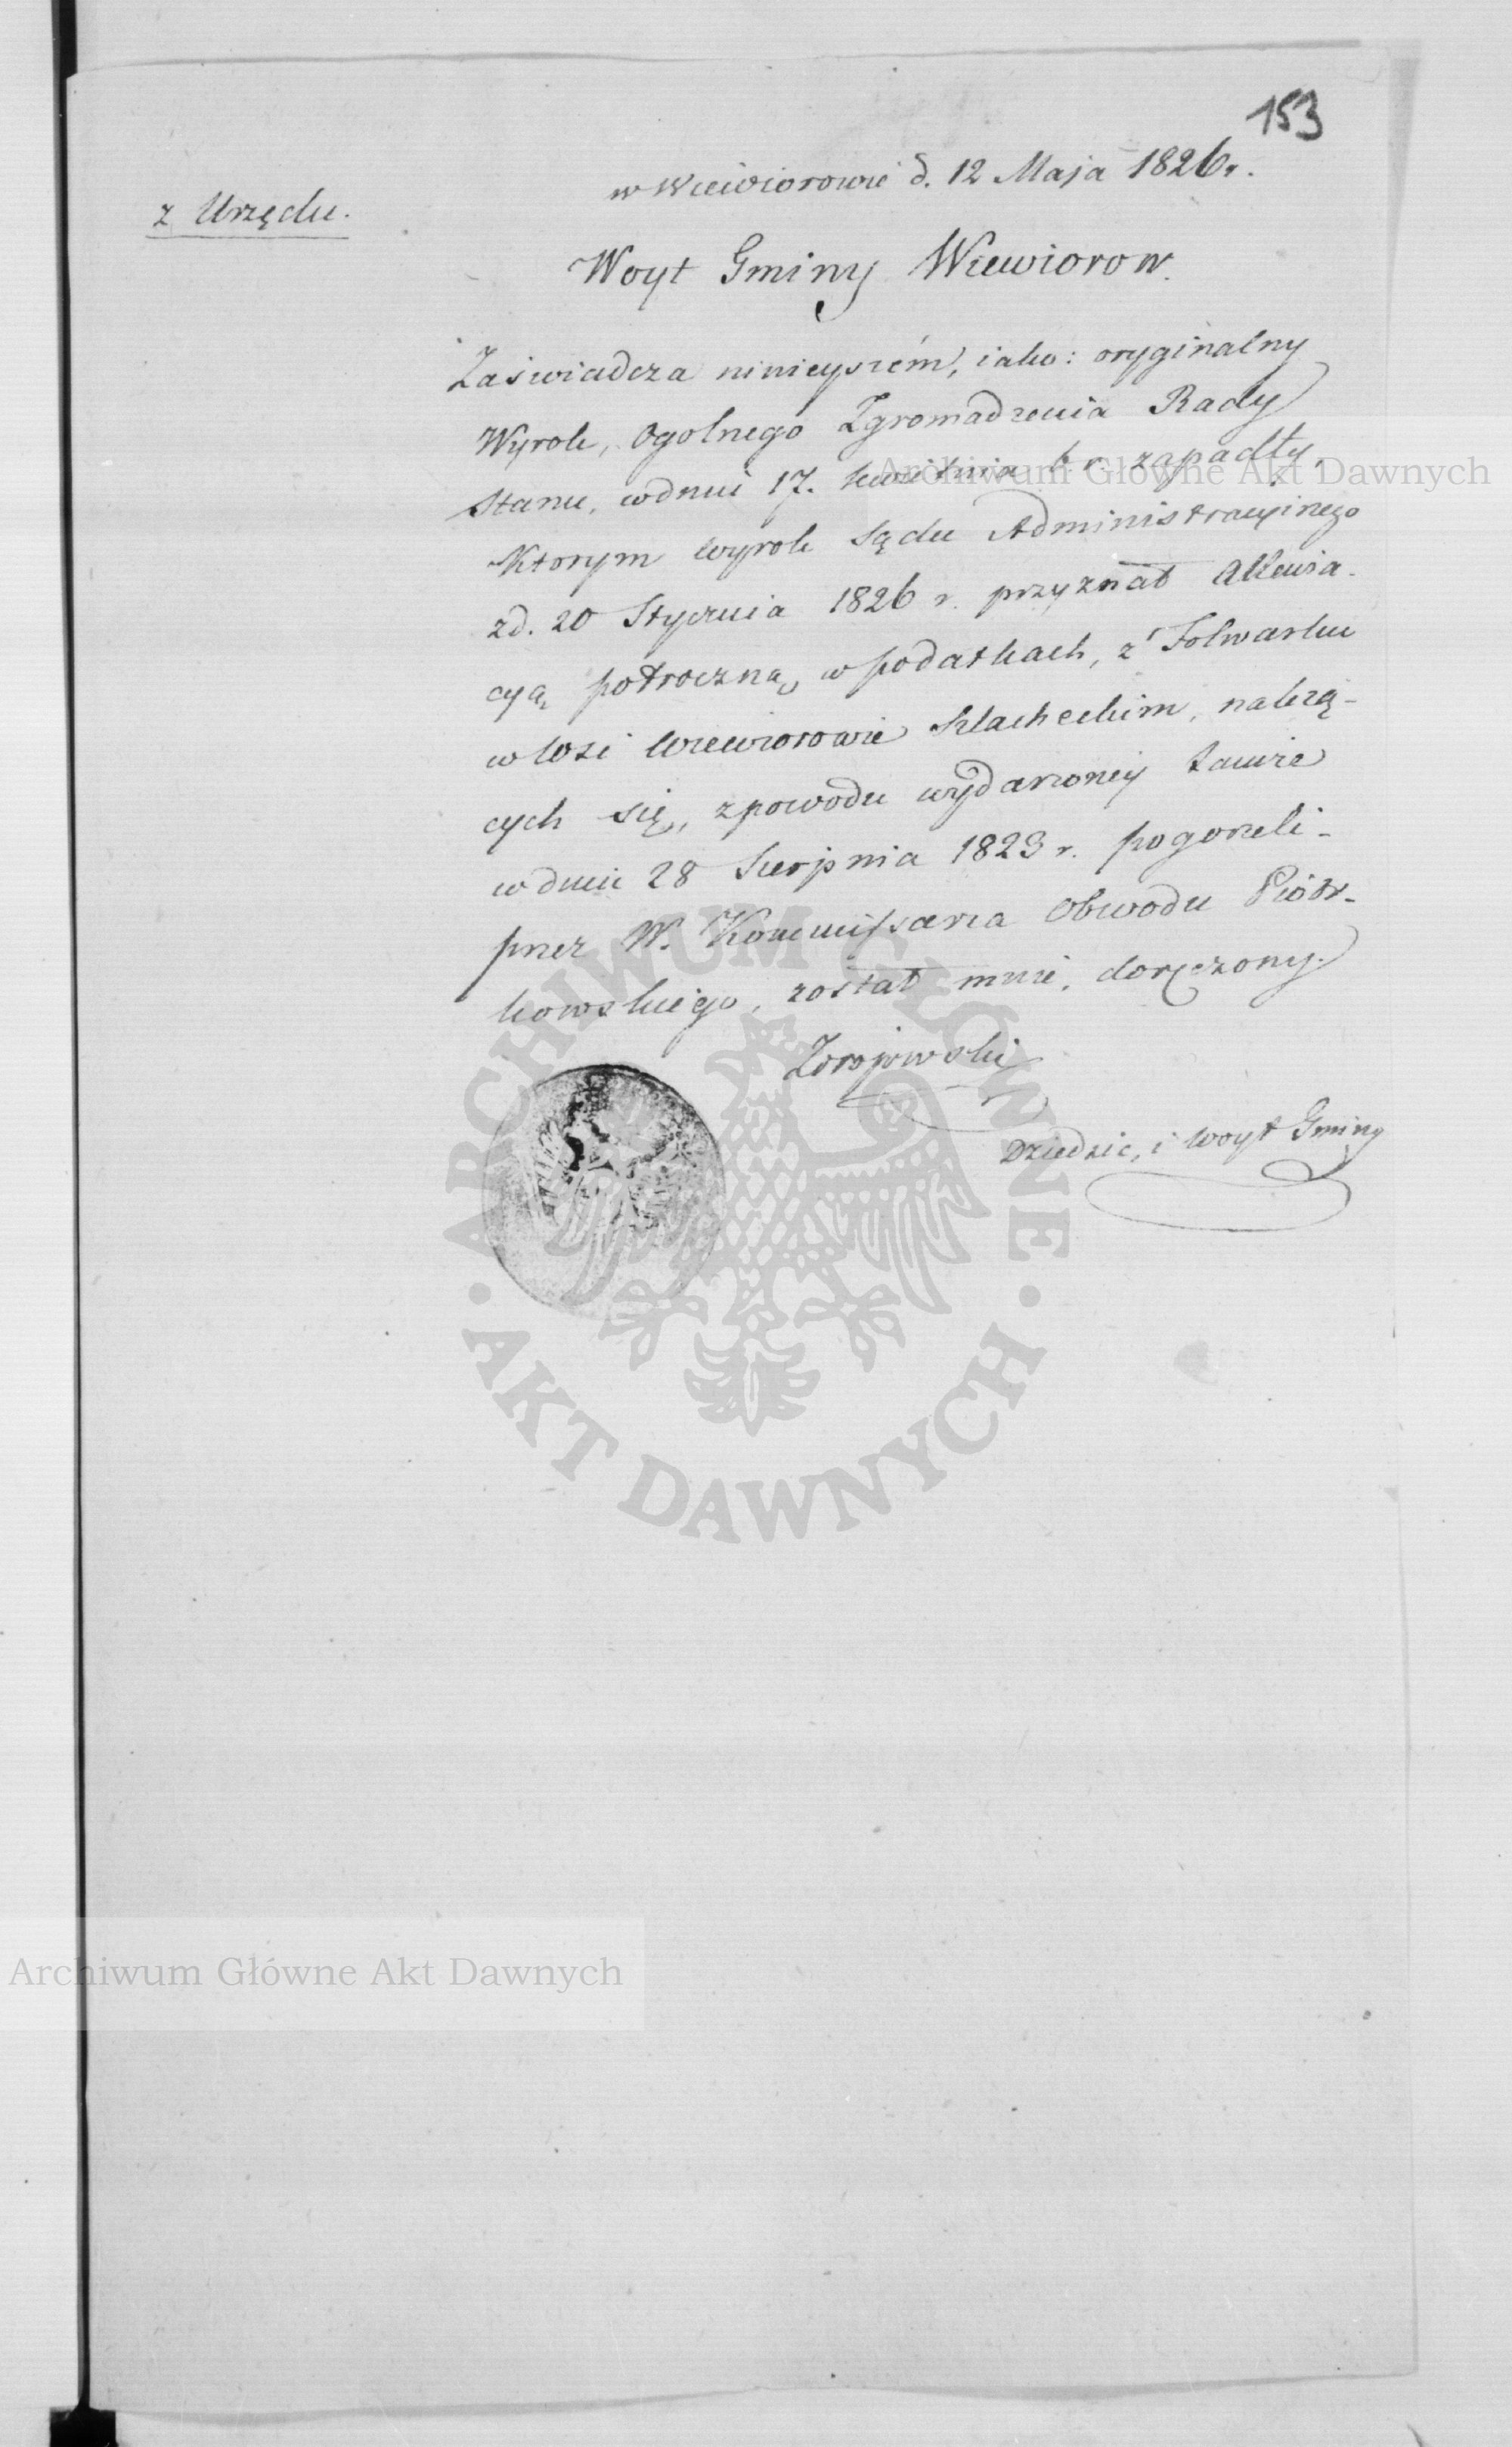 153
w Wiewiorowie d. 12 Maja 1826 r.
z Urzędu.
Woyt Gminy Wiewiorow.
Zaswiadcza ninieyszém, iako: oryginalny
Wyrok, Ogolnego Zgromadzenia Rady
Stanu, w dniu 17. kwietnia b r. zapadły,
Ktorym wyrok Sądu Administracyinego
z d. 20 Stycznia 1826 r. przyznał Allewia-
cyą potroczną, w podatkach, z Folwarku
w Wsi Wiewiorowie Szlacheckim, należą-
cych się, z powodu wydarzoney tamże
w dniu 28 Sierpnia 1823 r. pogorzeli-
przez W. Kommissarza Obwodu Piotr-
kowskiego, został mnie, doręczony.
Dziedzic, i Woyt Gminy
ARCHIWUM GŁÓWNE · AKT DAWNYCH ·
Archiwum Główne Akt Dawnych
Archiwum Główne Akt Dawnych